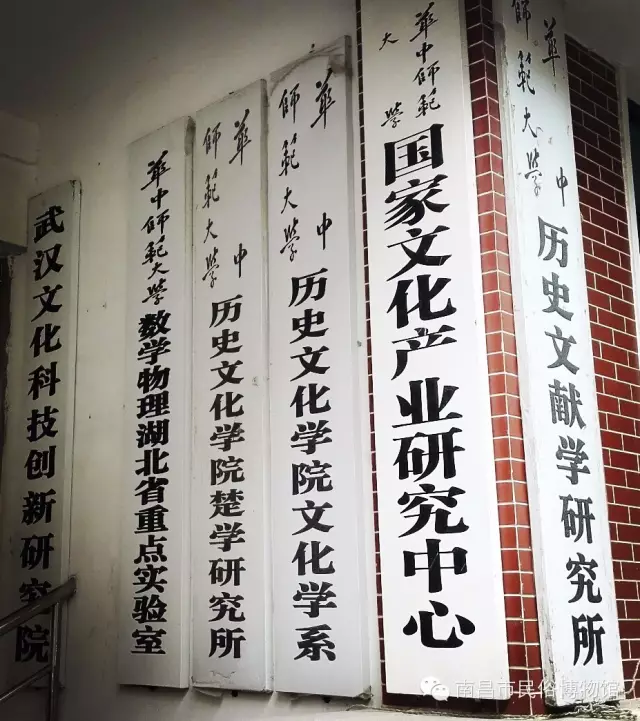 武汉文化科技创新研究院
華中師範大學数学物理湖北省重点实验室
華中師範大學历史文化学院楚学研究所
華中師範大學历史文化学院文化学系
華中師範大學国家文化产业研究中心
華中師範大學历史文献学研究所
南昌市民俗博物馆